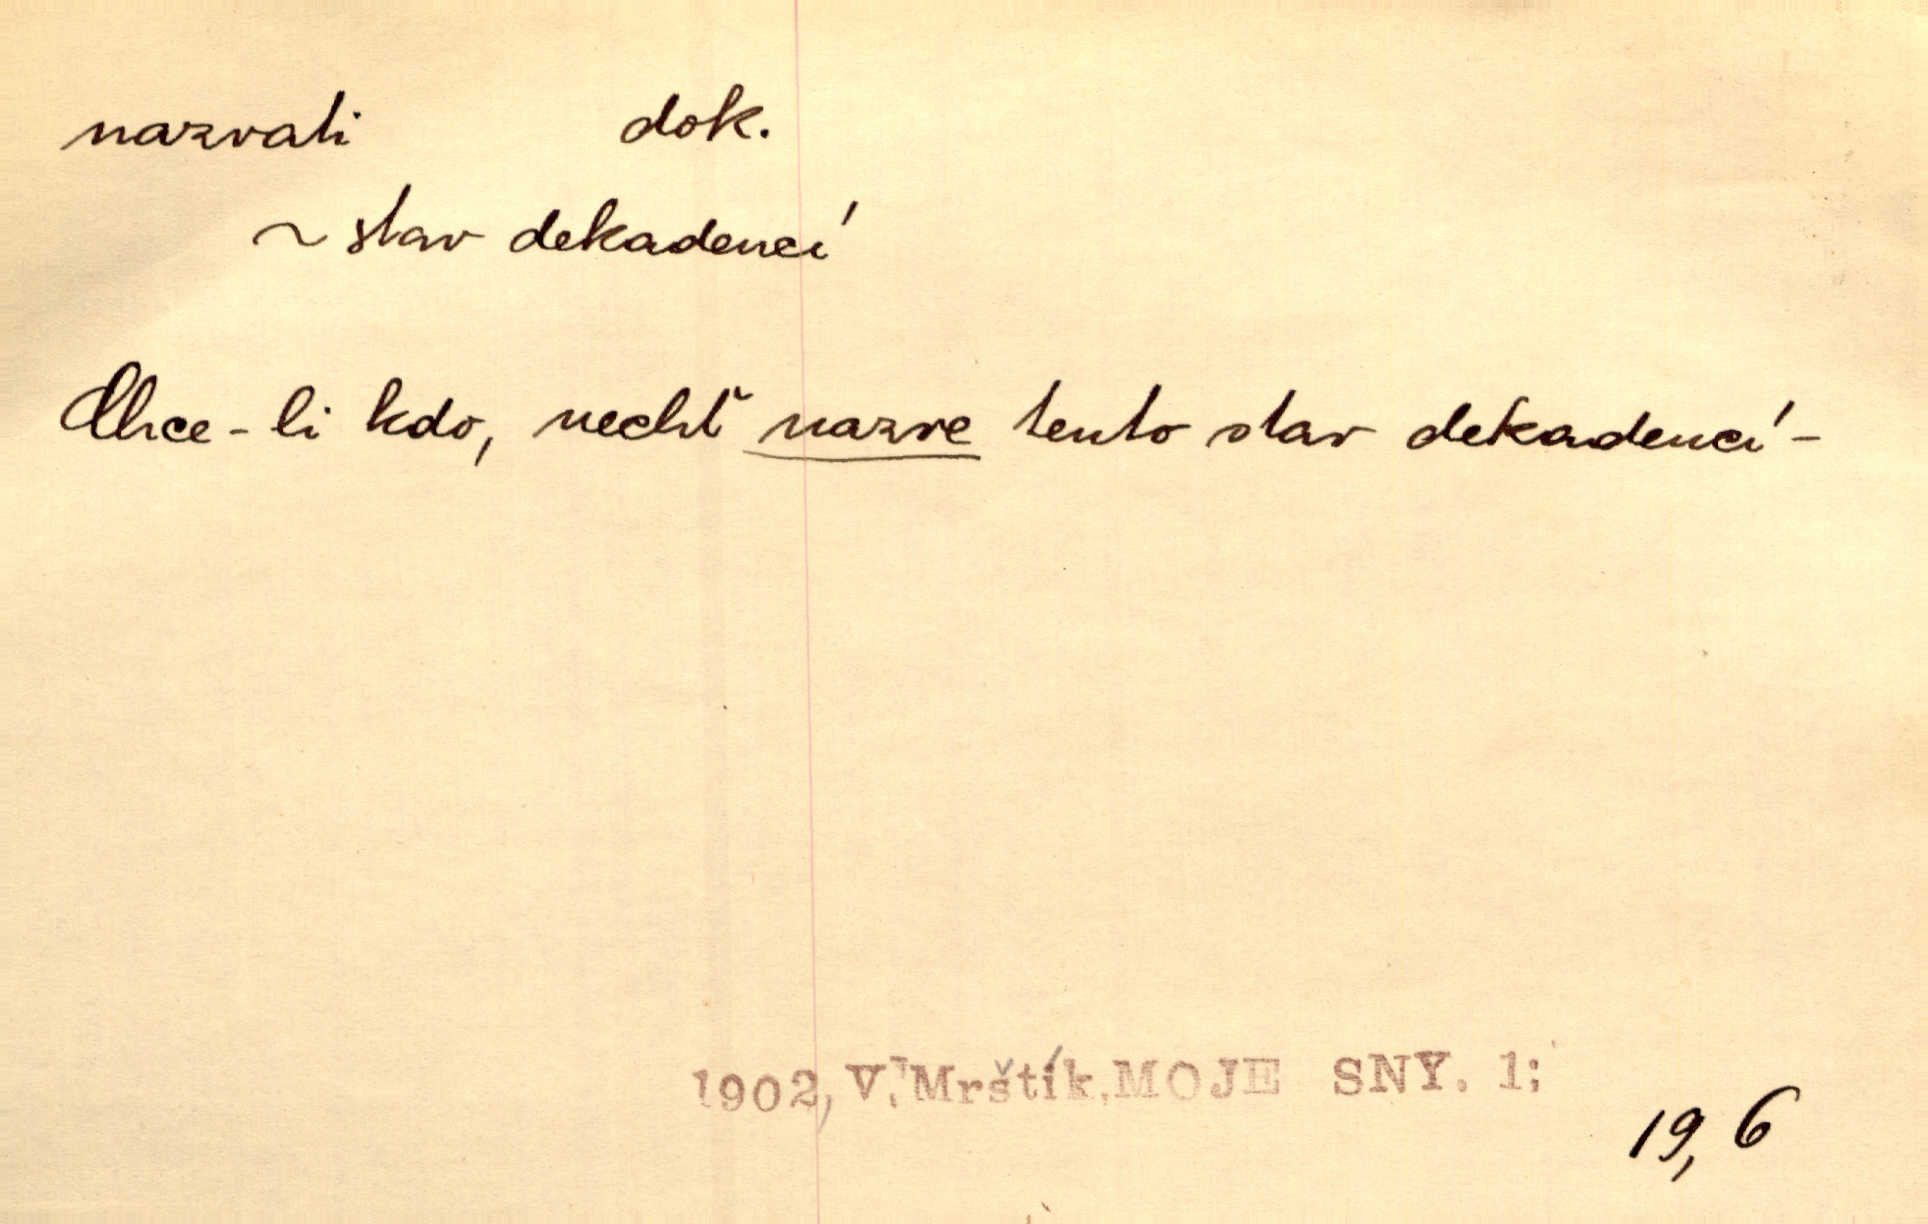 nazvati dok.
~ stav dekadencí
Chce-li kdo, nechť nazve tento stav dekadencí -
1902, V. Mrštík, MOJE SNY. 1;
19, 6